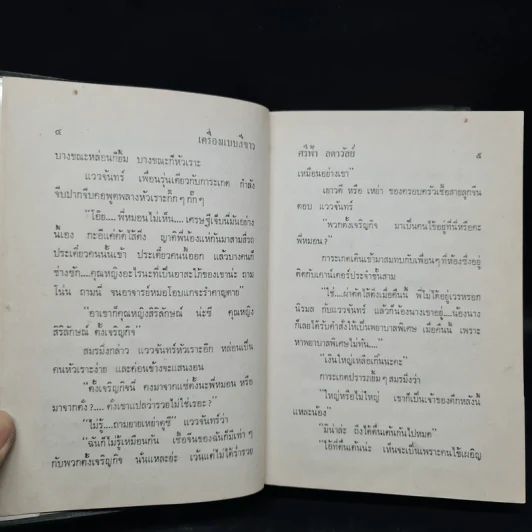 ๔ เครื่องแบบสีขาว
บางขณะหล่อนก็ยิ้ม บางขณะก็หัวเราะ
แววจันทร์ เพื่อนรุ่นเดียวกับการะเกด กำลัง
จีบปากจีบคอพูดพลางหัวเราะกิ๊กๆ กั๊กๆ
"โอ๊ย....พี่หมอนไม่เห็น....เศรษฐีเจ็บนี่มันอย่าง
นี้เอง กะอีแค่ตัดไส้ติ่ง ญาติพี่น้องแห่กันมาสามสี่รถ
ประเดี๋ยวคนนั้นเข้า ประเดี๋ยวคนนี้ออก แล้วบางคนก็
ช่างซัก....คุณหญิงอะไรนะที่เป็นอาสะใภ้ของเขาน่ะ ถาม
โน่น ถามนี่ จนอาจารย์หมอโอบแกจะรำคาญตาย"
"อาเขาก็คุณหญิงสิริลักษณ์ น่ะซี คุณหญิง
สิริลักษณ์ ตั้งเจริญกิจ"
สมรมิ่งกล่าว แววจันทร์หัวเราะอีก หล่อนเป็น
คนหัวเราะง่าย และค่อนข้างจะแสนงอน
"ตั้งเจริญกิจนี่ คงมาจากแซ่ตั้งนะพี่หมอน หรือ
มาจากตั๊ง?.....ตังเขาแปลว่ารวยไม่ใช่เรอะ?"
"ไม่รู้....ถามยายเหย่าดูซี" แววจันทร์ว่า
"ฉันก็ไม่รู้เหมือนกัน เชื้อจีนของฉันก็มีเท่า ๆ
กับพวกตั้งเจริญกิจ นั่นแหละย่ะ เว้นแต่ไม่ได้ร่ำรวย
ศรีฟ้า ลดาวัลย์ ๕
เหมือนอย่างเขา"
เยาวดี หรือ เหย่า ของครอบครัวเชื้อสายลูกจีน
ตอบ แววจันทร์
"พวกตั้งเจริญกิจ มาเป็นคนไข้อยู่ที่นี่หรือคะ
พี่หมอน?"
การะเกดเดินเข้ามาสมทบกับเพื่อนๆ ที่ห้องซึ่งอยู่
ติดกับเคาน์เตอร์ประจำชั้นสาม
"ใช่....ผ่าตัดไส้ติ่งเมื่อคืนนี้ พี่ไม่ได้อยู่เวรหรอก
นิรมล กับแววจันทร์ แล้วก็น้องนางเขาอยู่....น้องนาง
ก็เลยได้รับคำสั่งให้เป็นพยาบาลพิเศษ เมื่อคืนนี้ เพราะ
หาพยาบาลพิเศษไม่ทัน...."
"เงินใหญ่เหลือเกินนะคะ"
การะเกดปรารภยิ้มๆ สมรมิ่งว่า
"ใหญ่หรือไม่ใหญ่ เขาก็เป็นเจ้าของตึกหลังนี้
แหละน้อง"
"มิน่าล่ะ ถึงได้ตื่นเต้นกันไปหมด"
"ไอ้ที่ตื่นเต้นน่ะ เห็นจะเป็นเพราะคนไข้เผอิญ